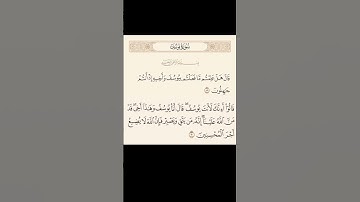 سورة يوسف
قَالَ هَلْ عَلِمْتُم مَّا فَعَلْتُم بِيُوسُفَ وَأَخِيهِ إِذْ أَنتُمْ
جَٰهِلُونَ
قَالُوٓا۟ أَءِنَّكَ لَأَنتَ يُوسُفُ ۖ قَالَ أَنَا۠ يُوسُفُ وَهَٰذَآ أَخِى ۖ قَدْ
مَنَّ ٱللَّهُ عَلَيْنَآ ۖ إِنَّهُۥ مَن يَتَّقِ وَيَصْبِرْ فَإِنَّ ٱللَّهَ لَا يُضِيعُ
أَجْرَ ٱلْمُحْسِنِينَ